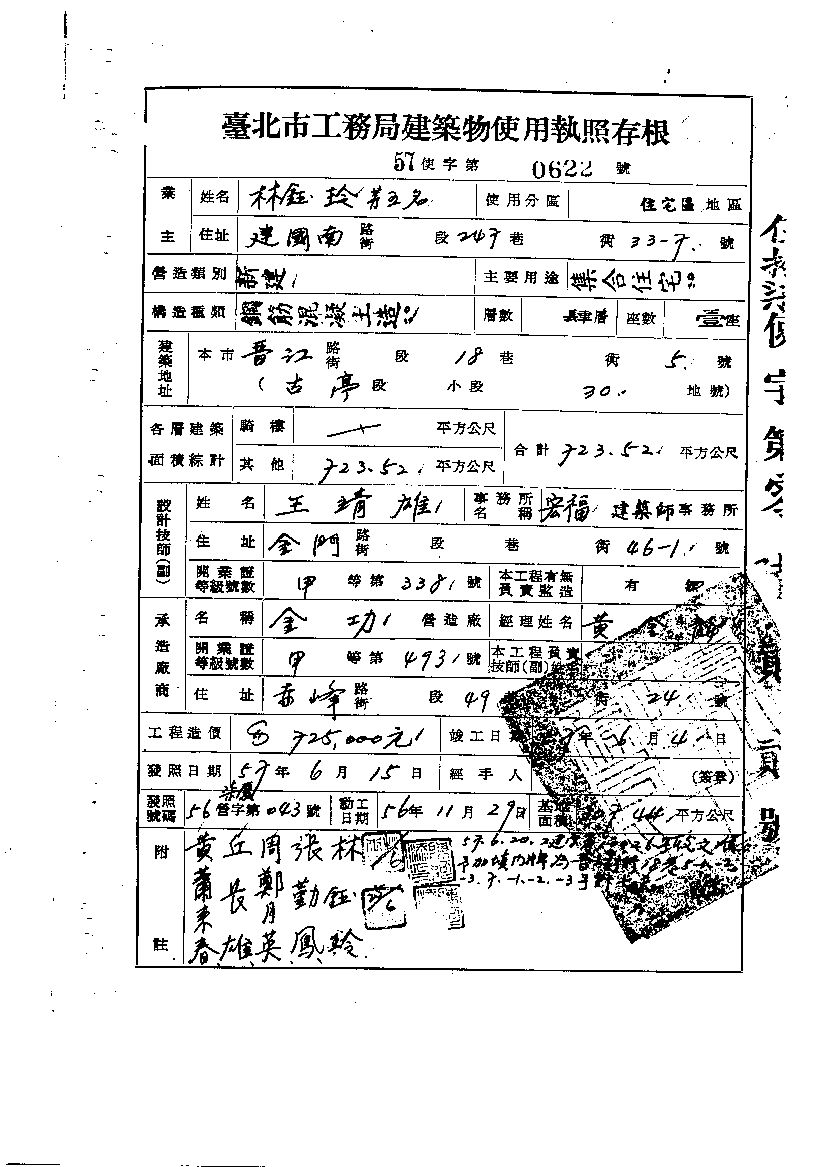 臺北市工務局建築物使用執照存根
57使字第 0622 號
業主 姓名 林鈺玲等五名 使用分區 住宅區地區
住址 建國南 路街 段 247巷 衖 33-7 號
營造類別 新建 主要用途 集合住宅
構造種類 鋼筋混凝土造 層數 層 座數 壹座
建築地址 本市 晋江 路街 段 18 巷 衖 5 號
(古亭段 小段 30 地號)
各層建築面積綜計 騎樓 平方公尺 合計 723.52 平方公尺
其他 723.52 平方公尺
設計技師(副) 姓名 王靖雄 事務所名稱 宏福 建築師事務所
住址 金門 路街 段 巷 衖 46-1 號
開業證等級號數 甲 等第 3381 號 本工程有無負責監造 有
承造廠商 名稱 金功 營造廠 經理姓名 黃金
開業證等級號數 甲 等第 4931 號 本工程負責技師(副)姓名
住址 赤峰 路街 段 49 衖 24 號
工程造價 725,000元 竣工日期 6月4日
發照日期 57年6月15日 經手人 (簽章)
發照號碼 56營字第043號 動工日期 56年11月29日 基地面積 平方公尺
附註
林鈺羚
張勤鳳
周鄭月英
丘長雄
黃蕭來春
57.6.20.